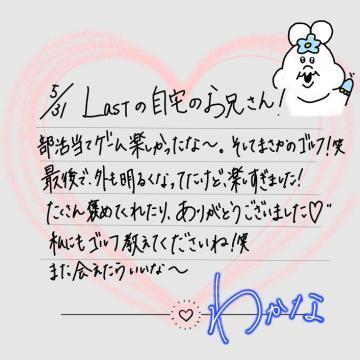 5/31 Lastの自宅のお兄さん!
部活当てゲーム楽しかったな〜。そしてまさかのゴルフ!笑
最後で、外も明るくなってたけど、楽しすぎました!
たくさん褒めてくれたり、ありがとうございました♡
私にもゴルフ教えてくださいね!笑
また会えたらいいな〜
わかな